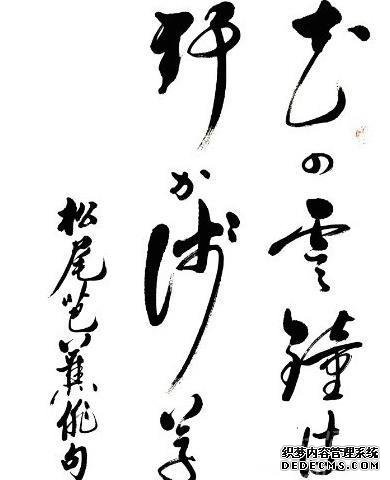 花の雲鐘は
野か浅草
松尾芭蕉俳句
织梦内容管理系统
DEDECMS.COM